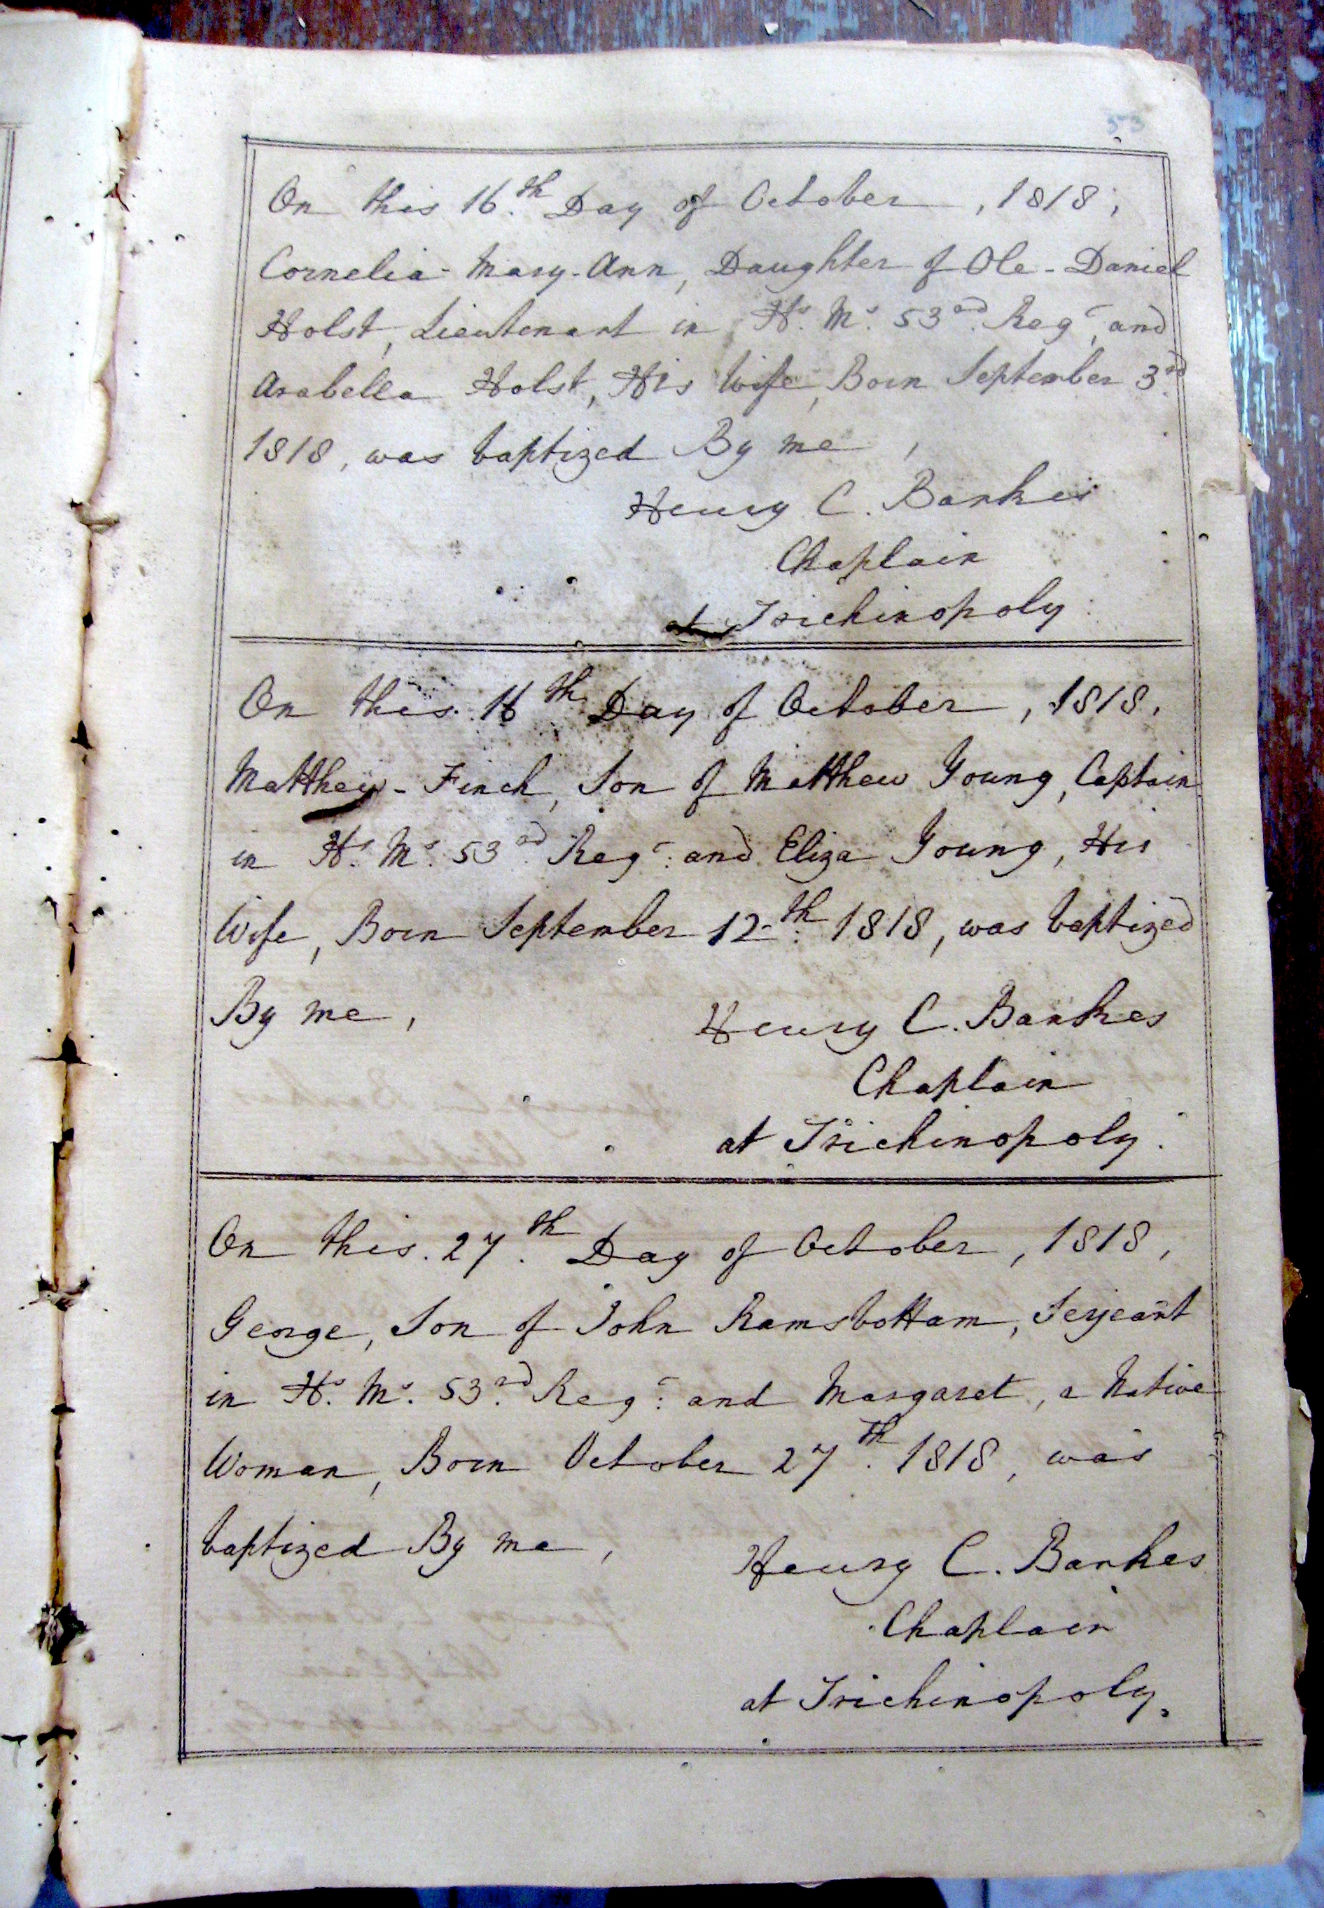 53
On this 16.th Day of October, 1818,
Cornelia-Mary-Ann, Daughter of Ole-Daniel
Holst, Lieutenant in Hs. Ms. 53rd. Regt. and
Arabella Holst, His Wife, Born September 3rd.
1818, was baptized By me,
Henry C. Bankes
Chaplain
at Trichinopoly.
On this 16th Day of October, 1818,
Matthew-Finch, Son of Matthew Young, Captain
in Hs. Ms. 53rd. Regt. and Eliza Young, His
Wife, Born September 12th. 1818, was baptized
By me,
Henry C. Bankes
Chaplain
at Trichinopoly.
On this 27.th Day of October, 1818,
George, Son of John Ramsbottam, Serjeant
in Hs. Ms. 53rd. Regt. and Margaret, a Native
Woman, Born October 27th. 1818, was
baptized By me,
Henry C. Bankes
Chaplain
at Trichinopoly.